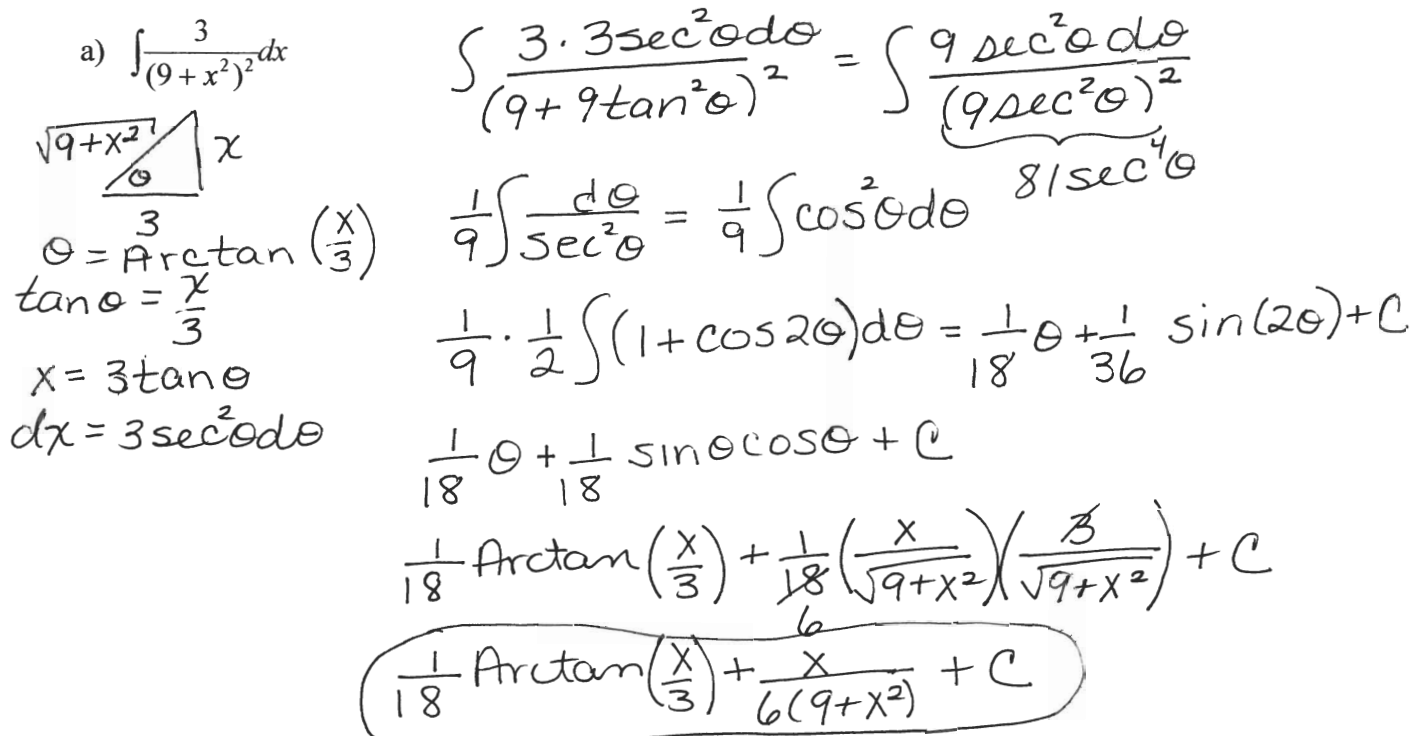 a) ∫ 3/(9 + x²)² dx
√9+x²
x
θ
3
θ = Arctan (x/3)
tanθ = x/3
x = 3tanθ
dx = 3sec²θdθ
∫ 3·3sec²θdθ/(9+9tan²θ)² = ∫ 9sec²θdθ/(9sec²θ)²
81sec⁴θ
1/9 ∫ dθ/sec²θ = 1/9 ∫cos²θdθ
1/9 · 1/2 ∫(1+cos2θ)dθ = 1/18 θ + 1/36 sin(2θ)+C
1/18 θ + 1/18 sinθcosθ + C
1/18 Arctan(x/3) + 1/18 (x/√9+x²)(3/√9+x²) + C
6
1/18 Arctan(x/3) + x/6(9+x²) + C